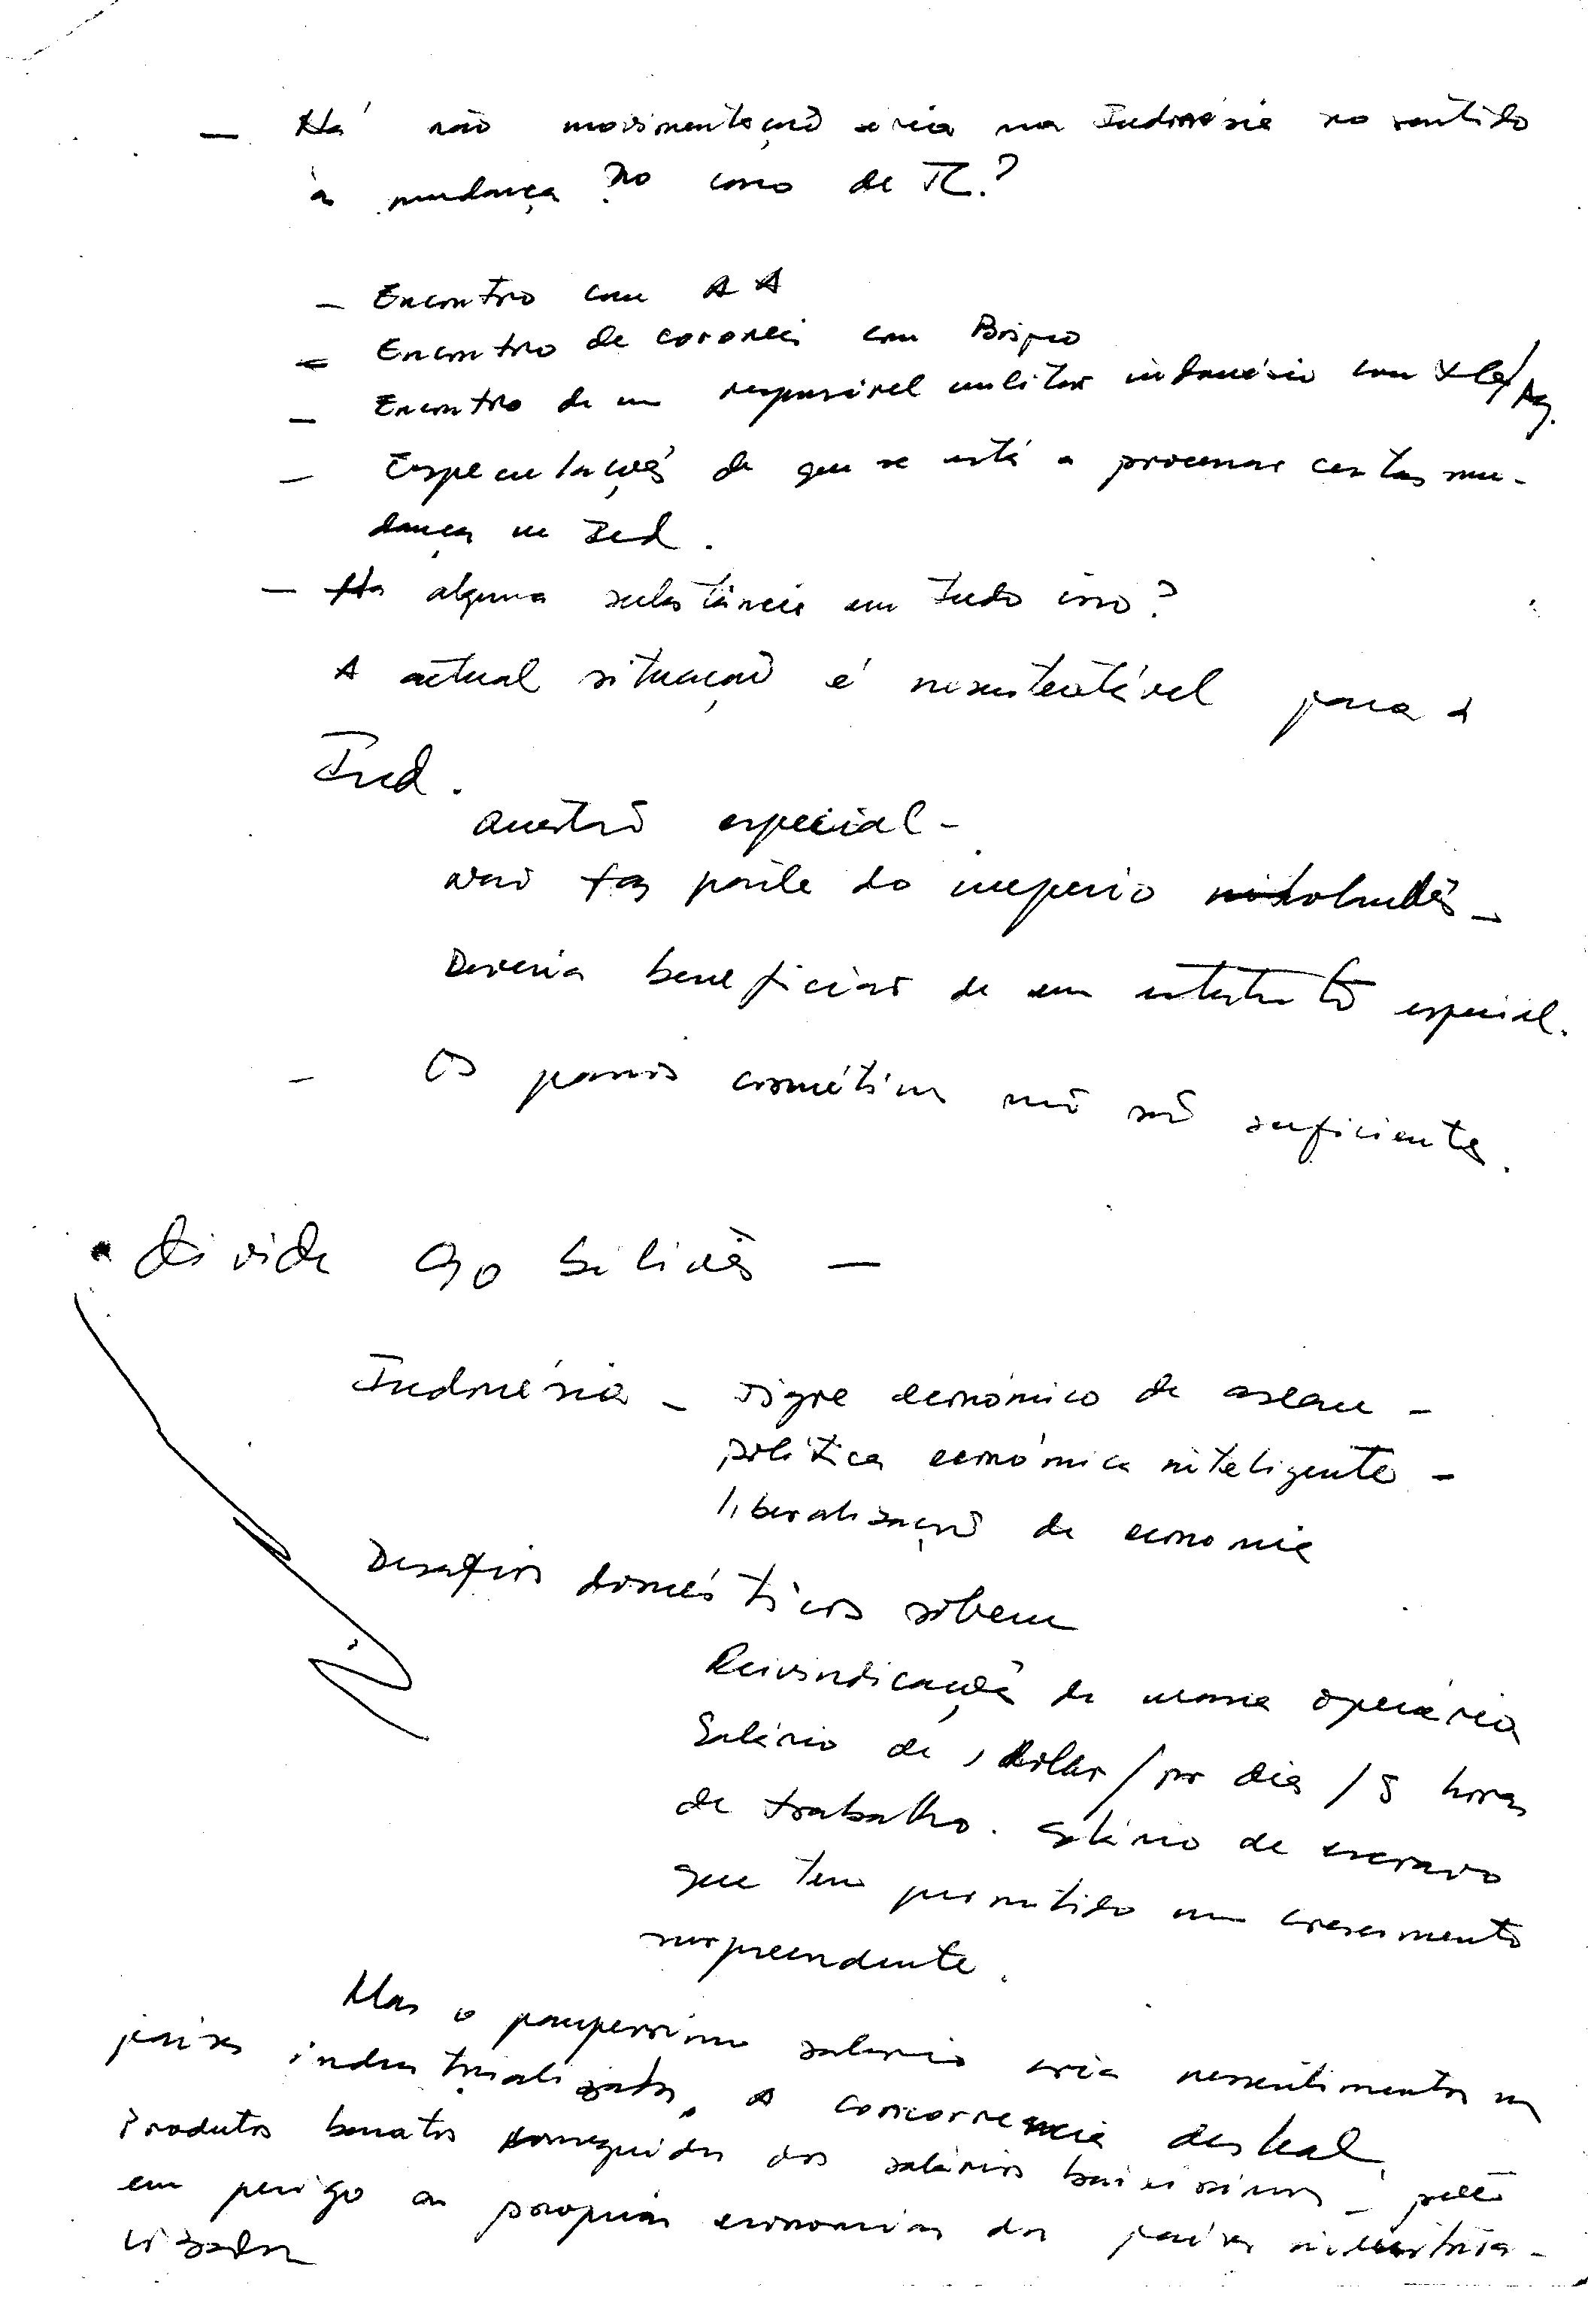 — Há não movimentação séria na Indonésia no sentido
à mudança no caso de TL?
— Encontro com AA
— Encontro de coroneis com Bispo
— Encontro de um responsável militar indonésio com
— Especulações de que se está a processar certas mu-
danças na Ind.
— Há alguma substância em tudo isso?
A actual situação é insustentável para a
Ind.
Questão especial —
Não faz parte do imperio holandês —
Deveria beneficiar de um estatuto especial.
— Os passos cosméticos não são suficientes.
• divida 90 biliões —
Indonésia — Tigre económico da asean —
politica económica inteligente —
liberalização da economia
Desafios domésticos sobem
Reivindicações da massa operária
Salário de 1 dollar / por dia / 8 horas
de trabalho. Salário de escravo
que tem permitido um crescimento
surpreendente.
Mas o pauperrimo salario cria ressentimentos nos
paises industrializados. A concorrencia desleal.
Produtos baratos conseguidos dos salários baixissimos — põem
em perigo as proprias economias dos paises industria-
lizados